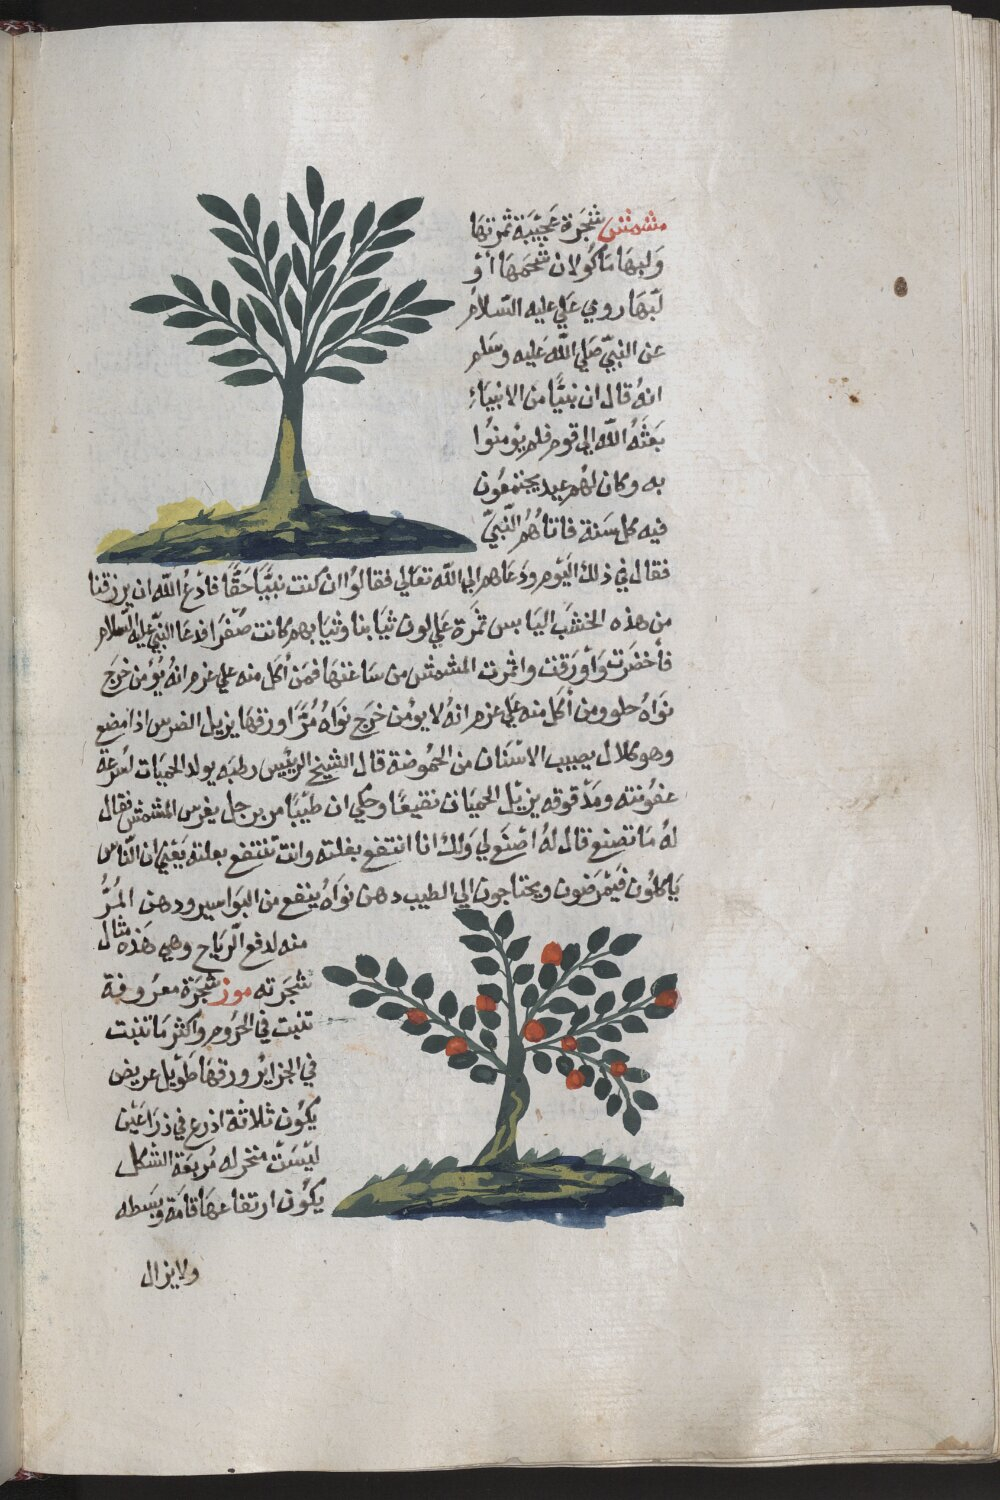 مشمش شجرة عجيبة ثمرتها
ولبها ماكولان شحمها أو
لبها روي علي عليه السلام
عن النبي صلي الله عليه وسلم
انه قال ان نبيًّا من الانبياء
بعثه الله الي قوم فلم يؤمنوا
به وكان لهم عيد يجتمعون
فيه كل سنة فاتاهُم النبيّ
فقال في ذلك اليوم ودعاهم الي الله تعالي فقالوا ان كنت نبيًّا حقًّا فادعُ الله ان يرزقنا
من هذه الخشب اليابس ثمرة علي لون ثيابنا وثيابهم كانت صفرا فدعا النبي عليه السلام
فأخضرت وأورقت واثمرت المشمش من ساعتها فمن أكل منه علي عزم انه يؤمن خرج
نواهُ حلو ومن أكل منه علي عزم انه لا يؤمن خرج نواهُ مُرًّا ورقها يزيل الضرس اذا مضغ
وهو كلال يصيب الاسنان من الحموضة قال الشيخ الرييس رطبه يولد الحميات لسرعة
عفونته ومدقوقه يزيل الحميات نقيعًا وحكي ان طبيبًا مر برجل يغرس المشمش فقال
لهُ ما تصنع قال لهُ اصنع لي ولك انا انتفع بغلته وانت تنتفع بعلته يعني ان الناس
ياكلون فيمرضون ويحتاجون الي الطبيب دهن نواهُ ينفع من البواسير ودهن المُرُّ
منه لدفع الرياح وهي هذه مثال
شجرته موز شجرة معروفة
تنبت في الجروم واكثر ما تنبت
في الجزائر ورقها طويل عريض
يكون ثلاثة اذرع في ذراعين
ليست منخرله مربعة الشكل
يكون ارتفاعها قامة وبسطه
ولا يزال